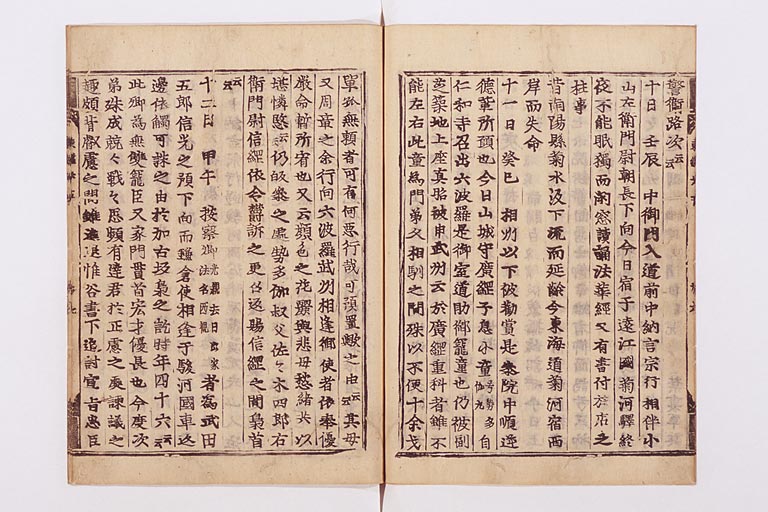 警衛路次云云
十日 壬辰 中御門入道前中納言宗行相伴小
山左衛門尉朝長下向今日宿于遠江國菊河驛終
夜不能眠獨向閑窓讀誦法華經又有書付旅店之
柱事
昔南陽縣菊水汲下流而延齡今東海道菊河宿西
岸而失命
十一日 癸巳 相州以下被勸賞是叅院中順逆
德輩所領也今日山城守廣經子息小童号勢多伽丸自
仁和寺召出六波羅是御室道助御寵童也仍被副
芝築地上座眞昭被申武州云於廣經重科者雖不
能左右此童爲門弟久相馴之間殊以不便十余歳
單孤無賴者可有何惡行哉可預置歟之由云云其母
又周章之余行向六波羅武州相逢御使者奉優
嚴命暫所宥也又云顔色之花麗與悲母愁緒共以
堪憐愍云云仍皈叅之處勢多伽叔父佐々木四郎右
衛門尉信經依令欝訴之更召返賜信經之間梟首
云云
十二日 甲午 按察卿光親去月出家法名西親者爲武田
五郎信光之預下向而鎌倉使相逢于駿河國車返
邊依觸可誅之由於加古坂梟之訖時年四十六云云
此卿爲無雙寵臣又家門貫首宏才優長也今度次
弟殊成兢々戰々思頻有達君於正慮之處諫議之
趣頗背叡慮之間雖進退惟谷書下追討宣旨忠臣